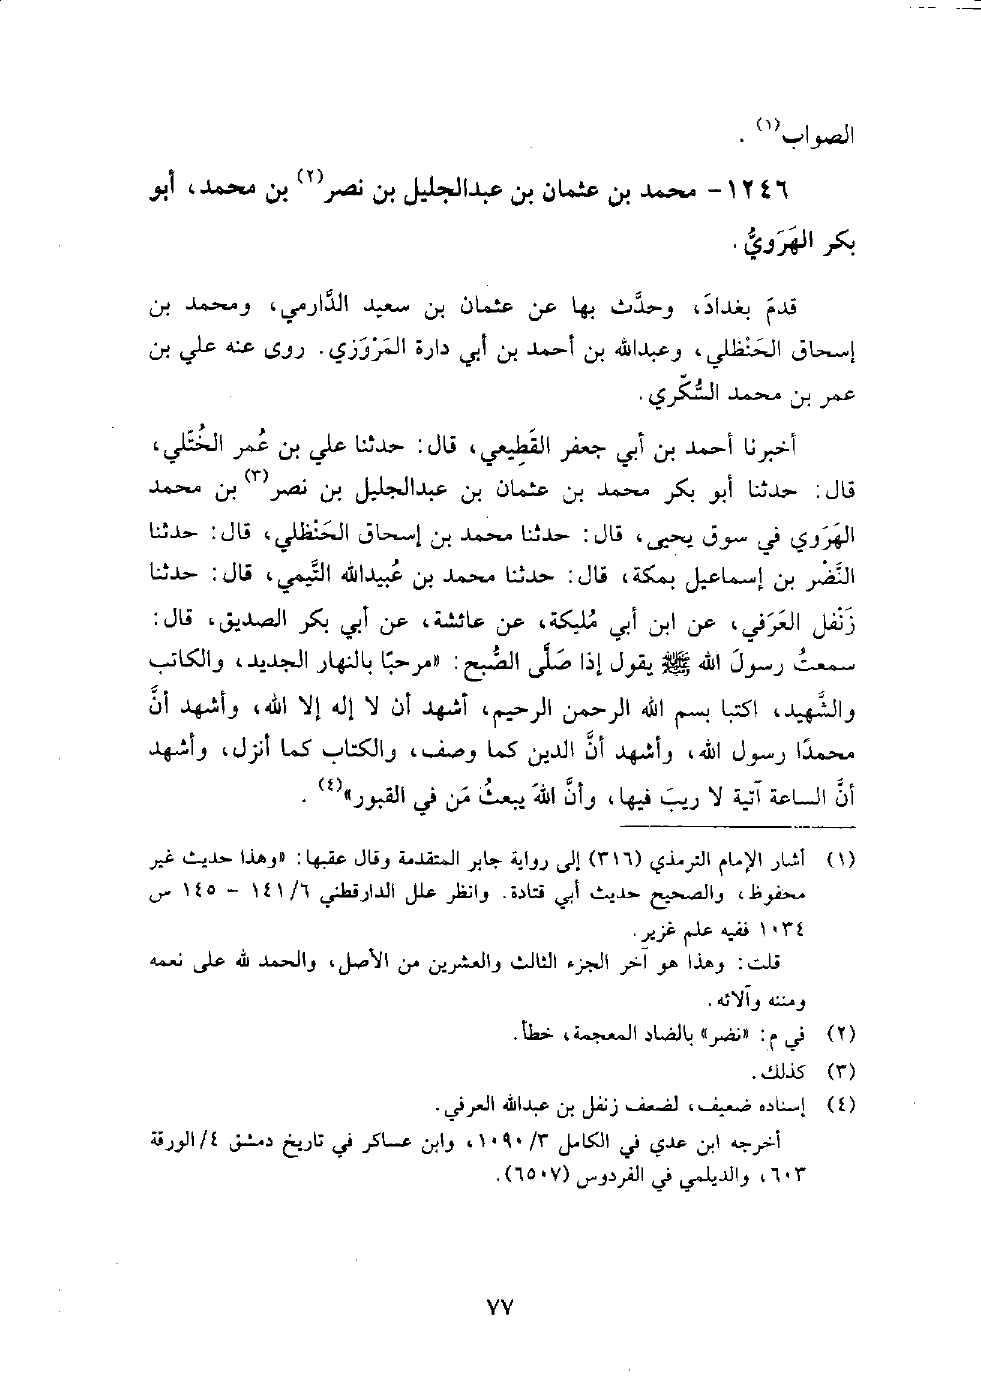 الصواب(١) .
١٢٤٦- محمد بن عثمان بن عبدالجليل بن نصر(٢) بن محمد، أبو
بكر الهَرَويُّ.
قدمَ بغدادَ، وحدَّث بها عن عثمان بن سعيد الدَّارمي، ومحمد بن
إسحاق الحَنْظلي، وعبدالله بن أحمد بن أبي دارة المَرْوَزي. روى عنه علي بن
عمر بن محمد السُّكّري.
أخبرنا أحمد بن أبي جعفر القَطِيعي، قال: حدثنا علي بن عُمر الخُتَّلي،
قال: حدثنا أبو بكر محمد بن عثمان بن عبدالجليل بن نصر(٣) بن محمد
الهَرَوي في سوق يحيى، قال: حدثنا محمد بن إسحاق الحَنْظلي، قال: حدثنا
النَّضْر بن إسماعيل بمكة، قال: حدثنا محمد بن عُبيدالله التَّيمي، قال: حدثنا
زَنْفل العَرَفي، عن ابن أبي مُليكة، عن عائشة، عن أبي بكر الصديق، قال:
سمعتُ رسولَ الله ﷺ يقول إذا صَلَّى الصُّبح: «مرحبًا بالنهار الجديد، والكاتب
والشَّهيد، اكتبا بسم الله الرحمن الرحيم، أشهد أن لا إله إلا الله، وأشهد أنَّ
محمدًا رسول الله، وأشهد أنَّ الدين كما وصف، والكتاب كما أنزل، وأشهد
أنَّ الساعة آتية لا ريبَ فيها، وأنَّ اللهَ يبعثُ مَن في القبور»(٤) .
(١) أشار الإمام الترمذي (٣١٦) إلى رواية جابر المتقدمة وقال عقبها: «وهذا حديث غير
محفوظ، والصحيح حديث أبي قتادة. وانظر علل الدارقطني ٦/ ١٤١ - ١٤٥ س
١٠٣٤ ففيه علم غزير.
قلت: وهذا هو آخر الجزء الثالث والعشرين من الأصل، والحمد لله على نعمه
ومننه وآلائه.
(٢) في م: «نضر» بالضاد المعجمة، خطأ.
(٣) كذلك.
(٤) إسناده ضعيف، لضعف زنفل بن عبدالله العرفي.
أخرجه ابن عدي في الكامل ٣/ ١٠٩٠، وابن عساكر في تاريخ دمشق ٤/ الورقة
٦٠٣، والديلمي في الفردوس (٦٥٠٧).
٧٧